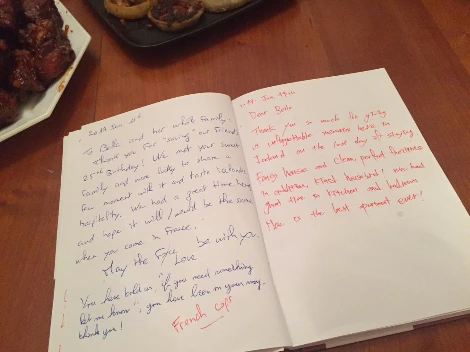 2014 Jun 11th
To Bella and her whole family:
Thank you for "saving" our friend's
25th Birthday! We met your sweet
family and were lucky to share a
few moment with it and taste Icelandic
hospitality. We had a great time here
and hope it will / would be the same
when you come in France.
May the Force be with you.
Love
You have told us, "if you need something
let me know", you have been on your way.
thank you!
French cops
Dear Bella
Thank you so much for giving
unforgettable memories here in
Iceland on the last day of staying
Fancy house and clean, perfect furniture
We had
great time in kitchen and bathroom
This is the best apartment ever!